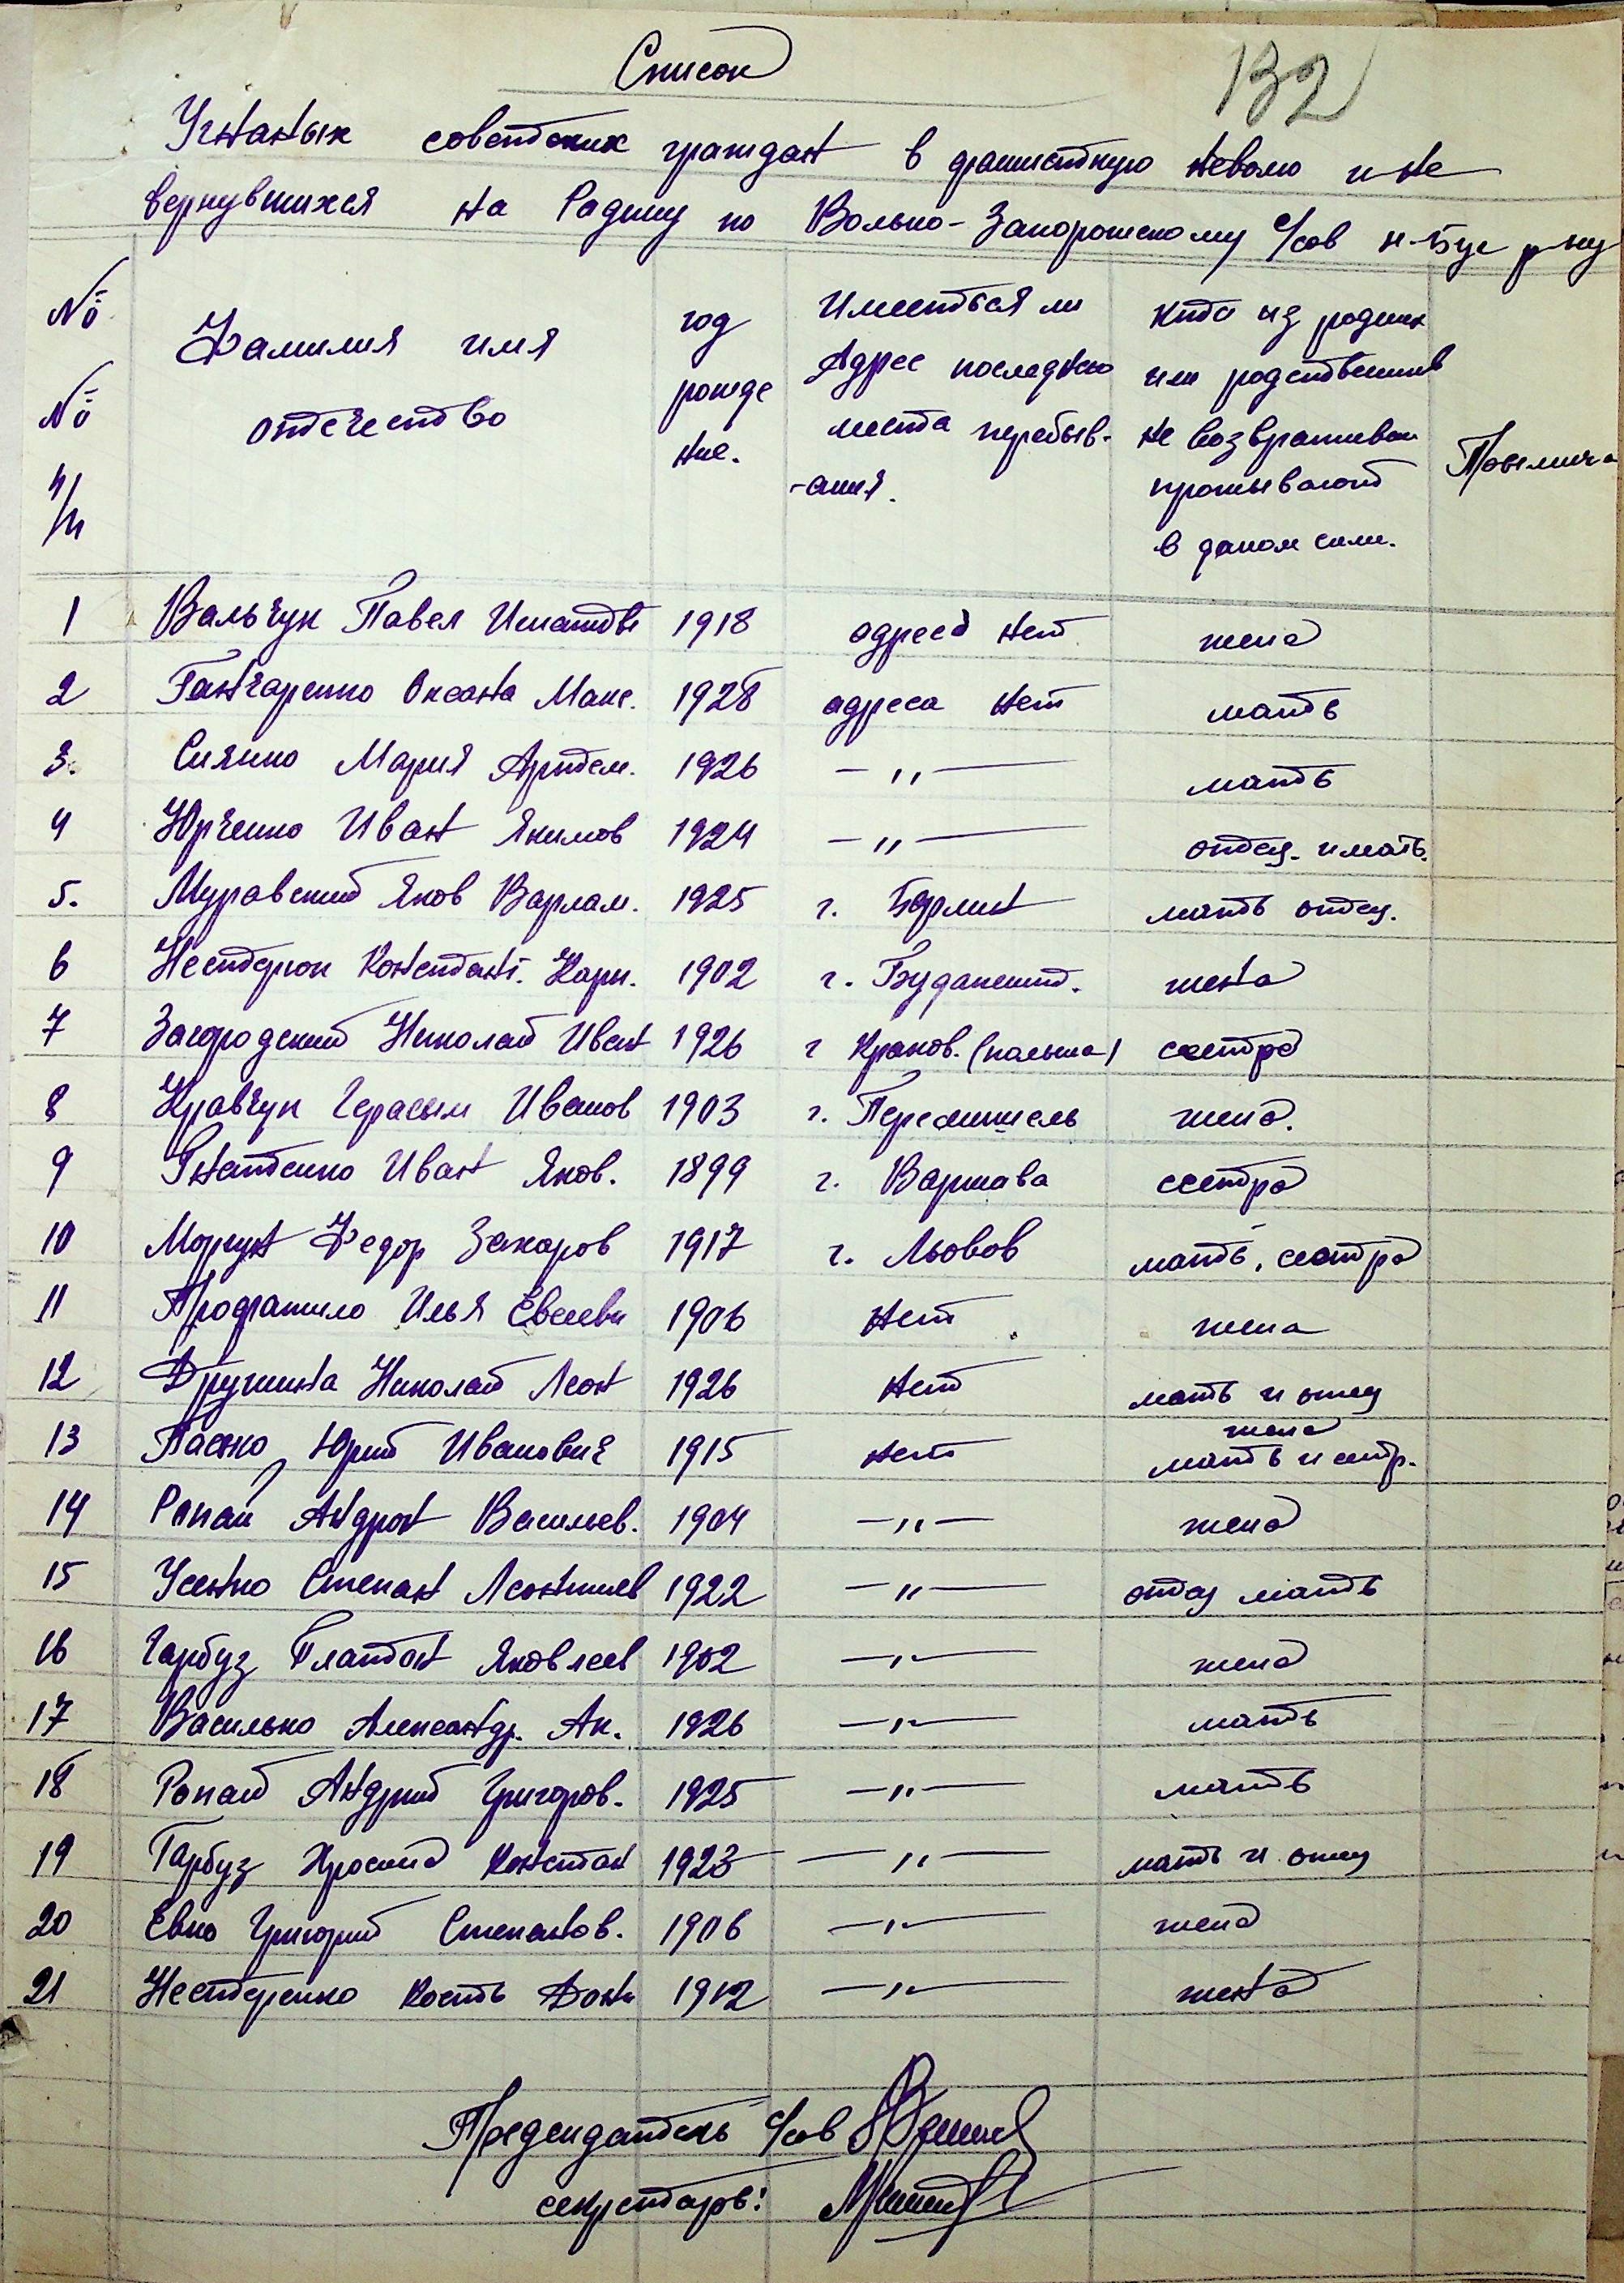 Список
132
Угнаных советских граждан в фашисткую неволю и не
вернувшихся на Родину по Вольно-Запорожскому с/сов н-Буг р-ну
№ № п/п
Фамилия имя отечество
год рожде ние.
Имееться ли Адрес последнего места перебыв- -ания.
кто из родных или родственников не возвратившихся проживают в даном селе.
1 Вальчук Павел Игнатов 1918 адреса нет жена
2 Ганчаренко Оксана Макс. 1928 адреса нет мать
3. Сиянко Мария Артем. 1926 —"— мать
4 Юрченко Иван Якимов 1924 —"— отец. и мать.
5. Муравский Яков Варлам. 1925 г. Берлин мать отец.
6 Нестерюк Констант. Карп. 1902 г. Будапешт. жена
7 Загородский Николай Иван 1926 г Краков. (польша) сестра
8 Кравчук Герасым Иванов 1903 г. Перемишель жена.
9 Гнатенко Иван Яков. 1899 г. Варшава сестра
10 Моргун Федор Захаров 1917 г. Львов мать, сестра
11 Илья Евсееви 1906 нет жена
12 Дружина Николай Леон 1926 нет мать и отец
13 Пасько Юрий Иванович 1915 нет жена мать и сестр.
14 Рапай Андрон Васильев. 1904 —"— жена
15 Усенко Степан Леонтиев 1922 —"— отец мать
16 Гарбуз Платон Яковлев 1902 —"— жена
17 Василько Александр. Ак. 1926 —"— мать
18 Рапай Андрий Григоров. 1925 —"— мать
19 Гарбуз Констан 1923 —"— мать и отец
20 Евко Григорий Степанов. 1906 —"— жена
21 Нестеренко Кость Дон 1912 —"— жена
Председатель с/сов
секретарь: